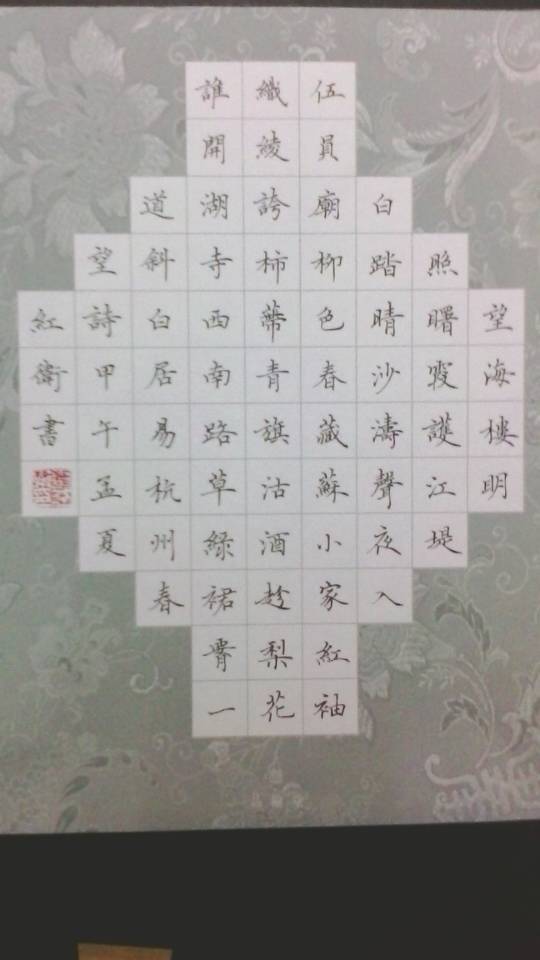 望海樓明
照曙霞護江堤
白踏晴沙濤聲夜入
伍員廟柳色春藏蘇小家紅袖
織綾誇柿蔕青旗沽酒趁梨花
誰開湖寺西南路草綠裙腰一
道斜白居易杭州春
望詩甲午孟夏
紅衛書